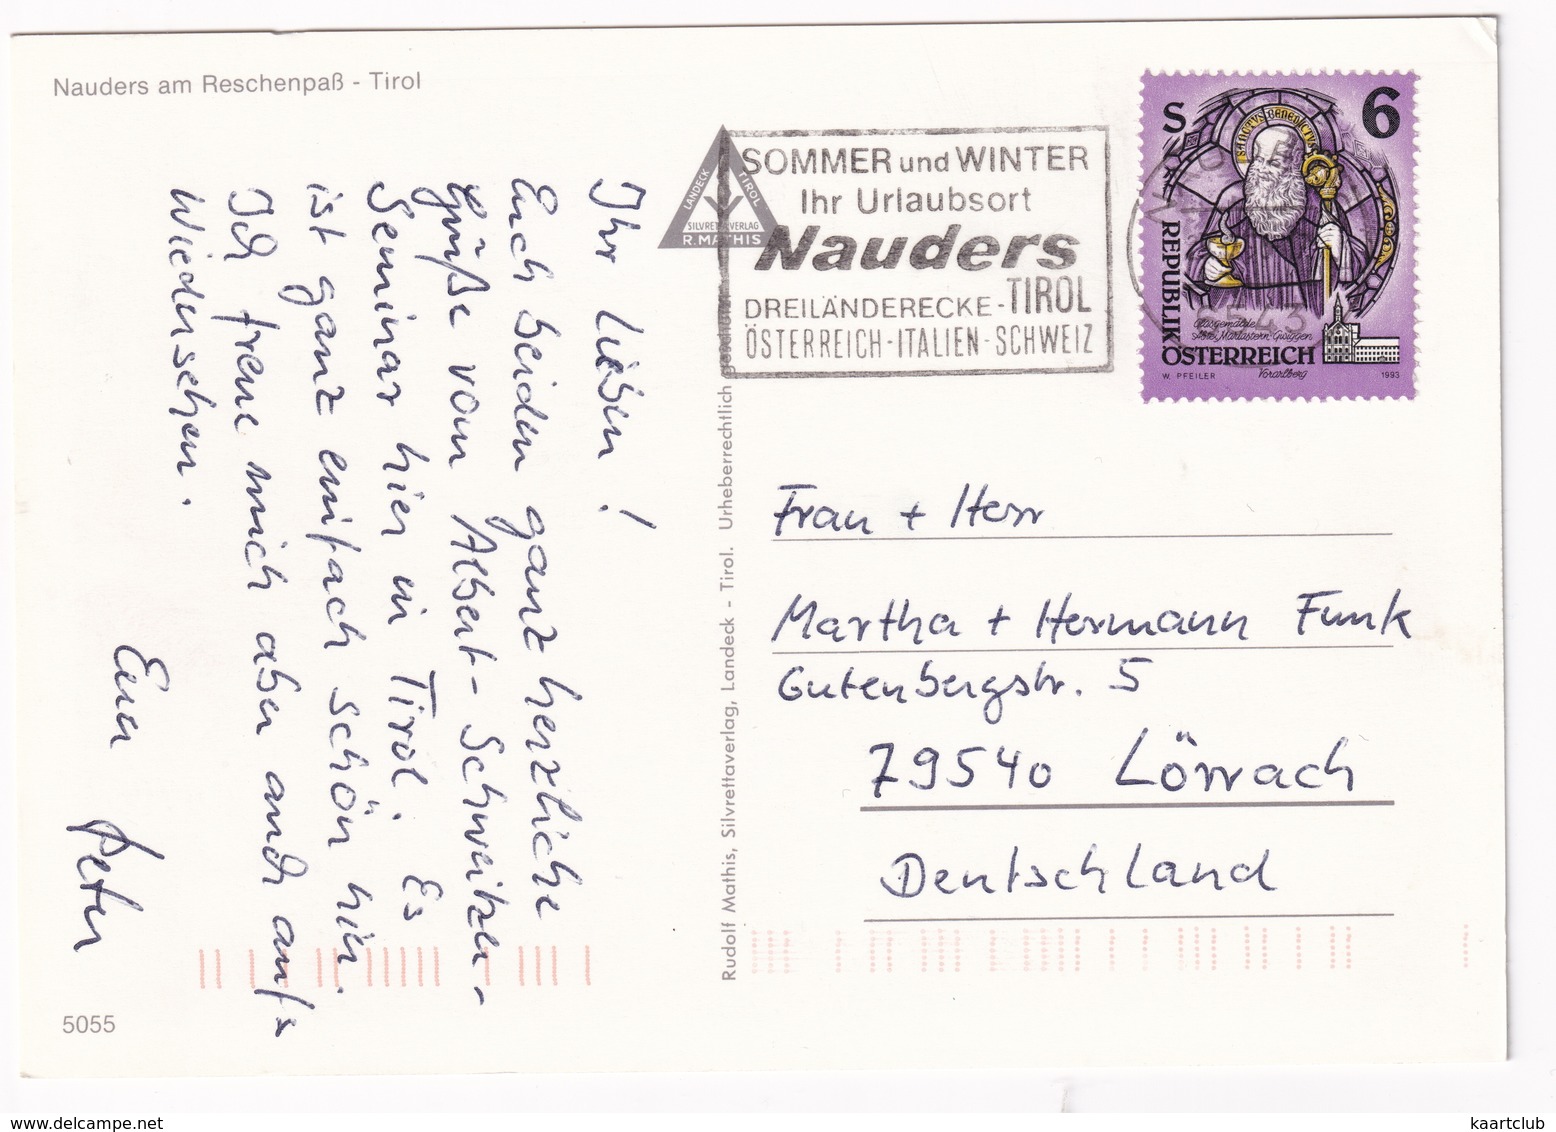 Nauders am Reschenpaß - Tirol
Ihr Lieben!
Euch beiden ganz herzliche
Grüße vom Albert-Schweitzer-
Seminar hier in Tirol. Es
ist ganz einfach schön hier.
Ich freue mich aber auch auf's
Wiedersehen.
Euer Peter
5055
LANDECK TIROL
SILVRETTAVERLAG
R. MATHIS
Rudolf Mathis, Silvrettaverlag, Landeck - Tirol. Urheberrechtlich geschützt
SOMMER und WINTER
Ihr Urlaubsort
Nauders
DREILÄNDERECKE-TIROL
ÖSTERREICH-ITALIEN-SCHWEIZ
6543
S 6
SANCTVS BENEDICTVS
REPUBLIK ÖSTERREICH
Glasgemälde
Mariastern-Gwiggen
Vorarlberg
W. PFEILER 1993
Frau + Herr
Martha + Hermann Funk
Gutenbergstr. 5
79540 Lörrach
Deutschland
kaartclub